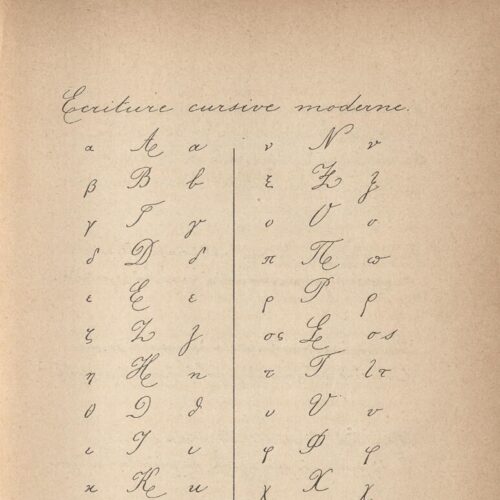 Ecriture cursive moderne.
α Α α ν Ν ν
β Β β ξ Ξ ξ
γ Γ γ ο Ο ο
δ Δ δ π Π ϖ
ε Ε ε ρ Ρ ρ
ζ Ζ ζ σς Σ σς
η Η η τ Τ τ
θ Θ ϑ υ Υ υ
ι Ι ι φ Φ φ
κ Κ κ χ Χ χ